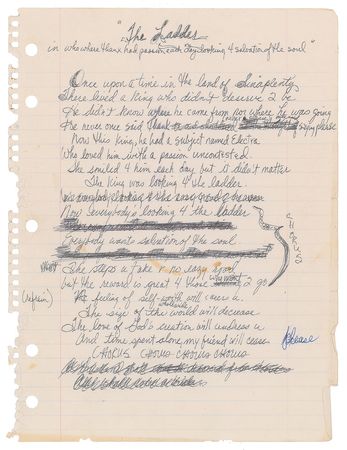 "The Ladder"
in who where thanx had passion each day looking 4 salvation of the soul"
Once upon a time in the land of Sinaplenty
There lived a King who didn't deserve 2 be
He didn't know where he came from nor where he was going
He never once said please
Now this King, he had a subject named Electra
Who loved him with a passion uncontested
She smiled 4 him each day but it didn't matter
The King was looking 4 the ladder.
Now Everybody's looking 4 the ladder
Everybody want salvation of the soul
CHORUS
The steps u take r no easy road
but the reward is great 4 those who want 2 go
(refrain) The feeling of self-worth will caress u.
The size of the world will decrease
The love of God's creation will undress u
And time spent alone, my friend will cease
Please
CHORUS CHORUS CHORUS CHORUS